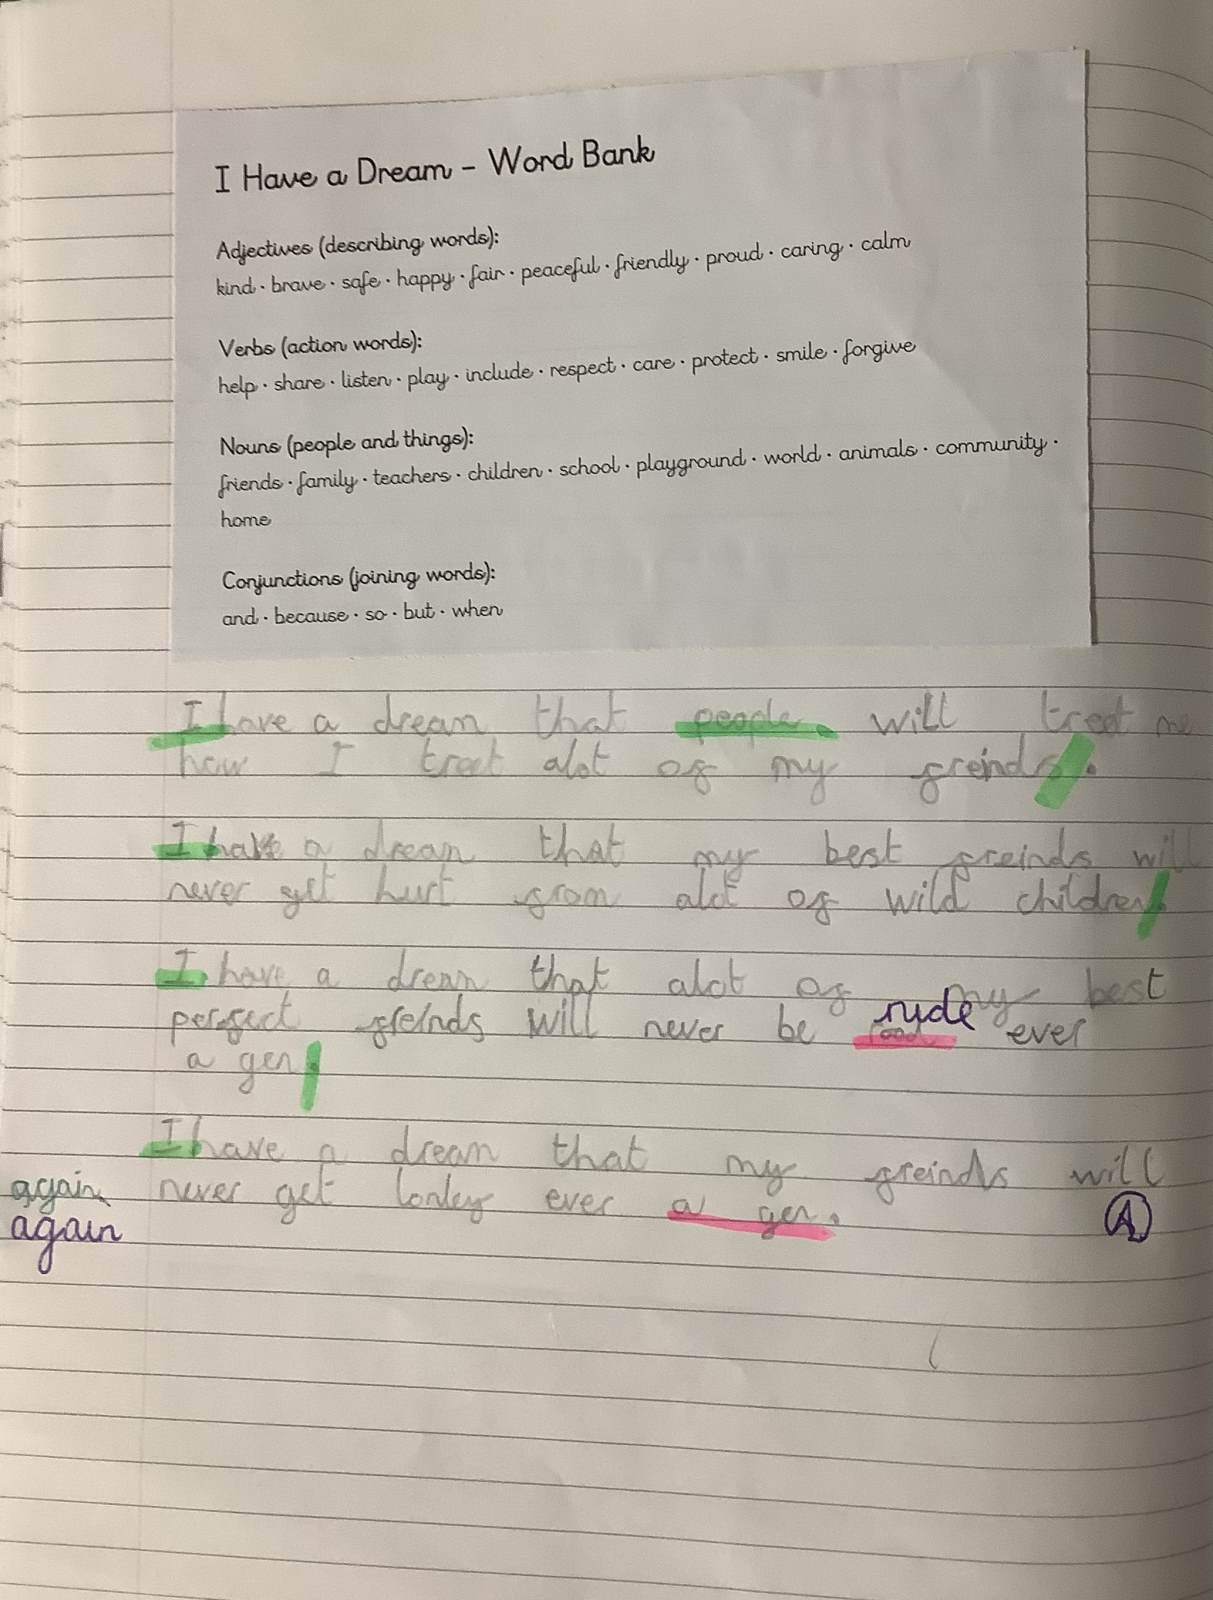 I Have a Dream - Word Bank
Adjectives (describing words):
kind · brave · safe · happy · fair · peaceful · friendly · proud · caring · calm
Verbs (action words):
help · share · listen · play · include · respect · care · protect · smile · forgive
Nouns (people and things):
friends · family · teachers · children · school · playground · world · animals · community ·
home
Conjunctions (joining words):
and · because · so · but · when
I have a dream that people. will treat me
how I treat alot of my freinds.
I have a dream that my best freinds will
never get hurt from alot of wild children.
I have a dream that alot of my best
perfect freinds will never be rude ever
a gen.
I have a dream that my freinds will
again never get lonley ever a gen. A
again